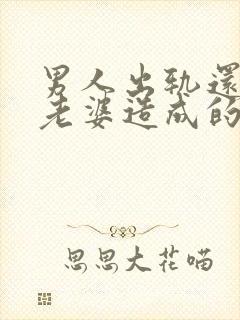 男人出轨還
老婆造成的
思思大花喵